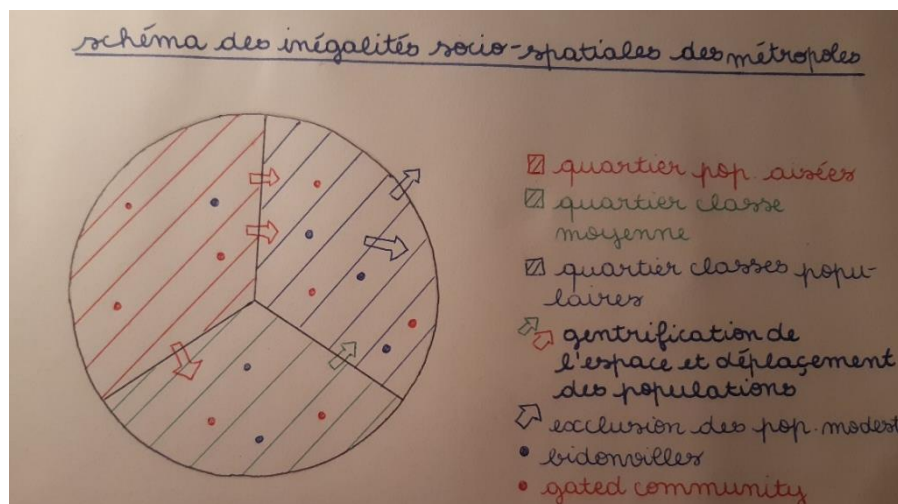 schéma des inégalités socio-spatiales des métropoles
quartier pop. aisées
quartier classe
moyenne
quartier classes popu-
laires
gentrification de
l'espace et déplaçement
des populations
exclusion des pop. modest
bidonvilles
gated community